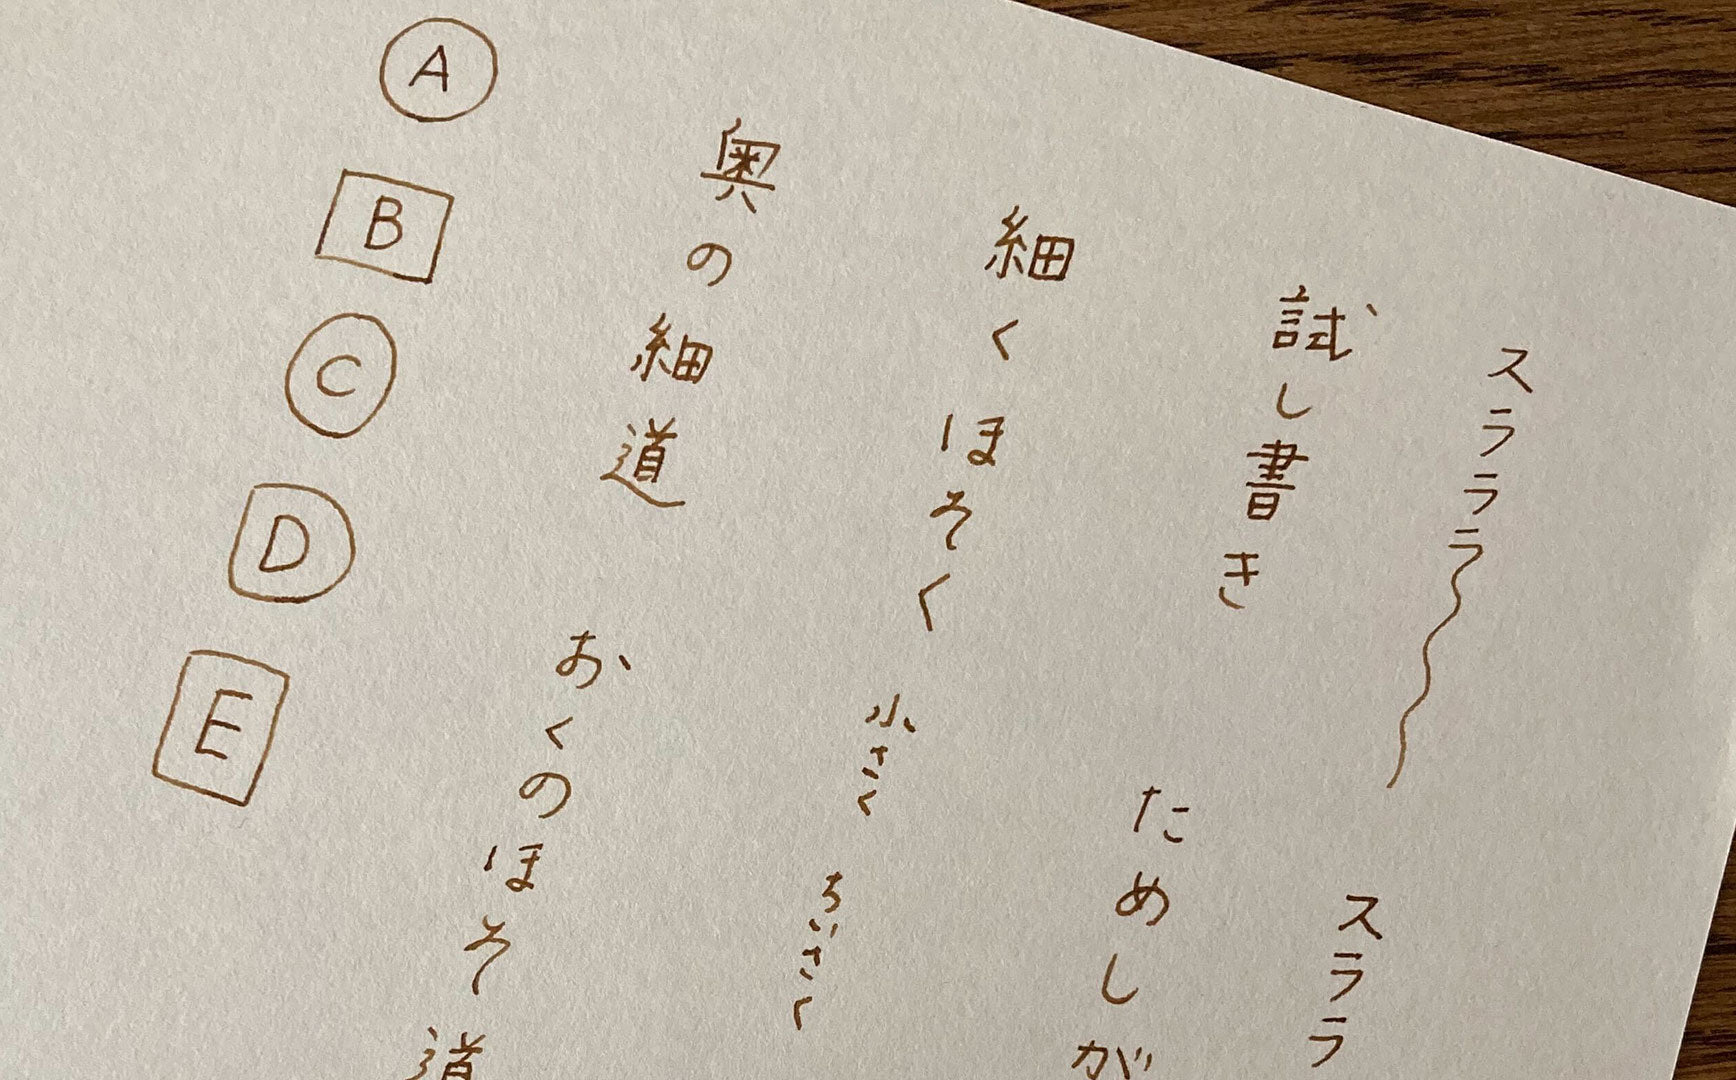 スラララ〜
スララ
試し書き
ためしが
細くほそく
小さく
ちいさく
奥の細道
おくのほそ道
A
B
C
D
E